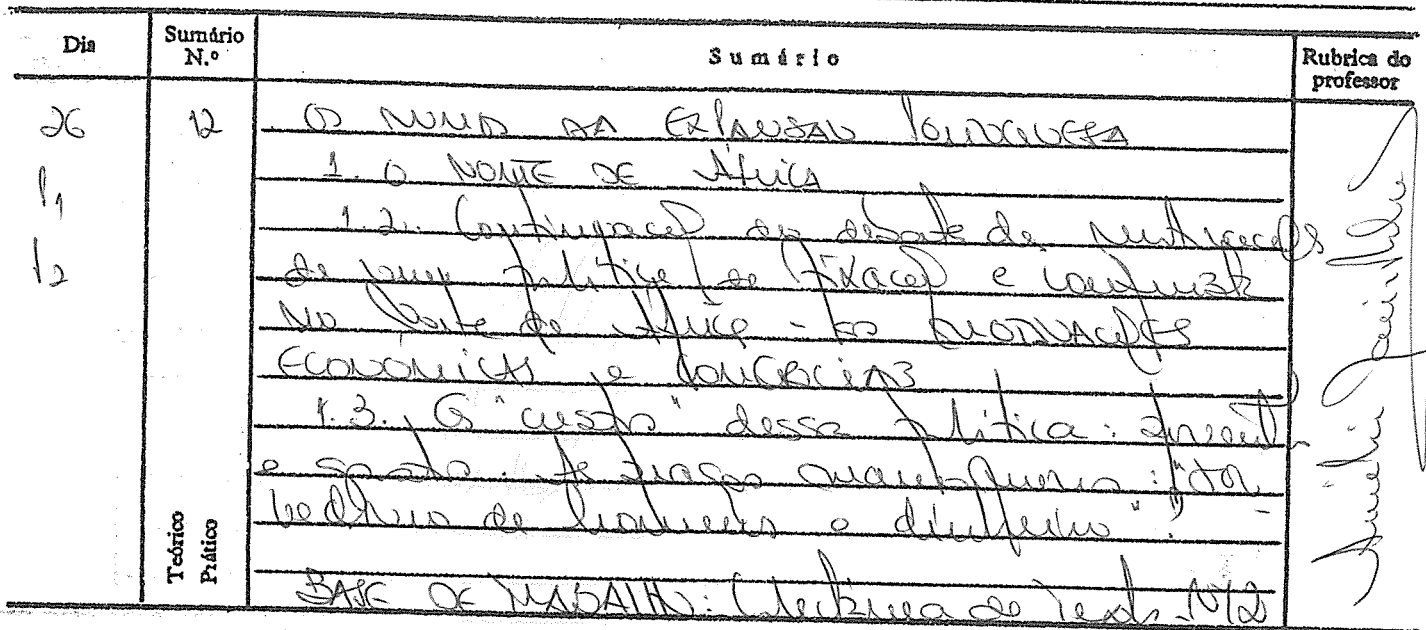 Dia Sumário N.º Sumário Rubrica do professor
26 12 OS RUMOS DA EXPANSÃO PORTUGUESA
P1 1. O NORTE DE África
1.2. Continuação do debate das motivações
P2 de uma política de fixação e conquista
no Norte de África - as MOTIVAÇÕES
ECONÓMICAS e COMERCIAIS
1.3. Os "custos" dessa política: 
e gastos. As praças marroquinas: "sor
vedouro de homens e dinheiro"?
Teórico
Prático
BASE DE TRABALHO: Colectânea de Textos Nº2